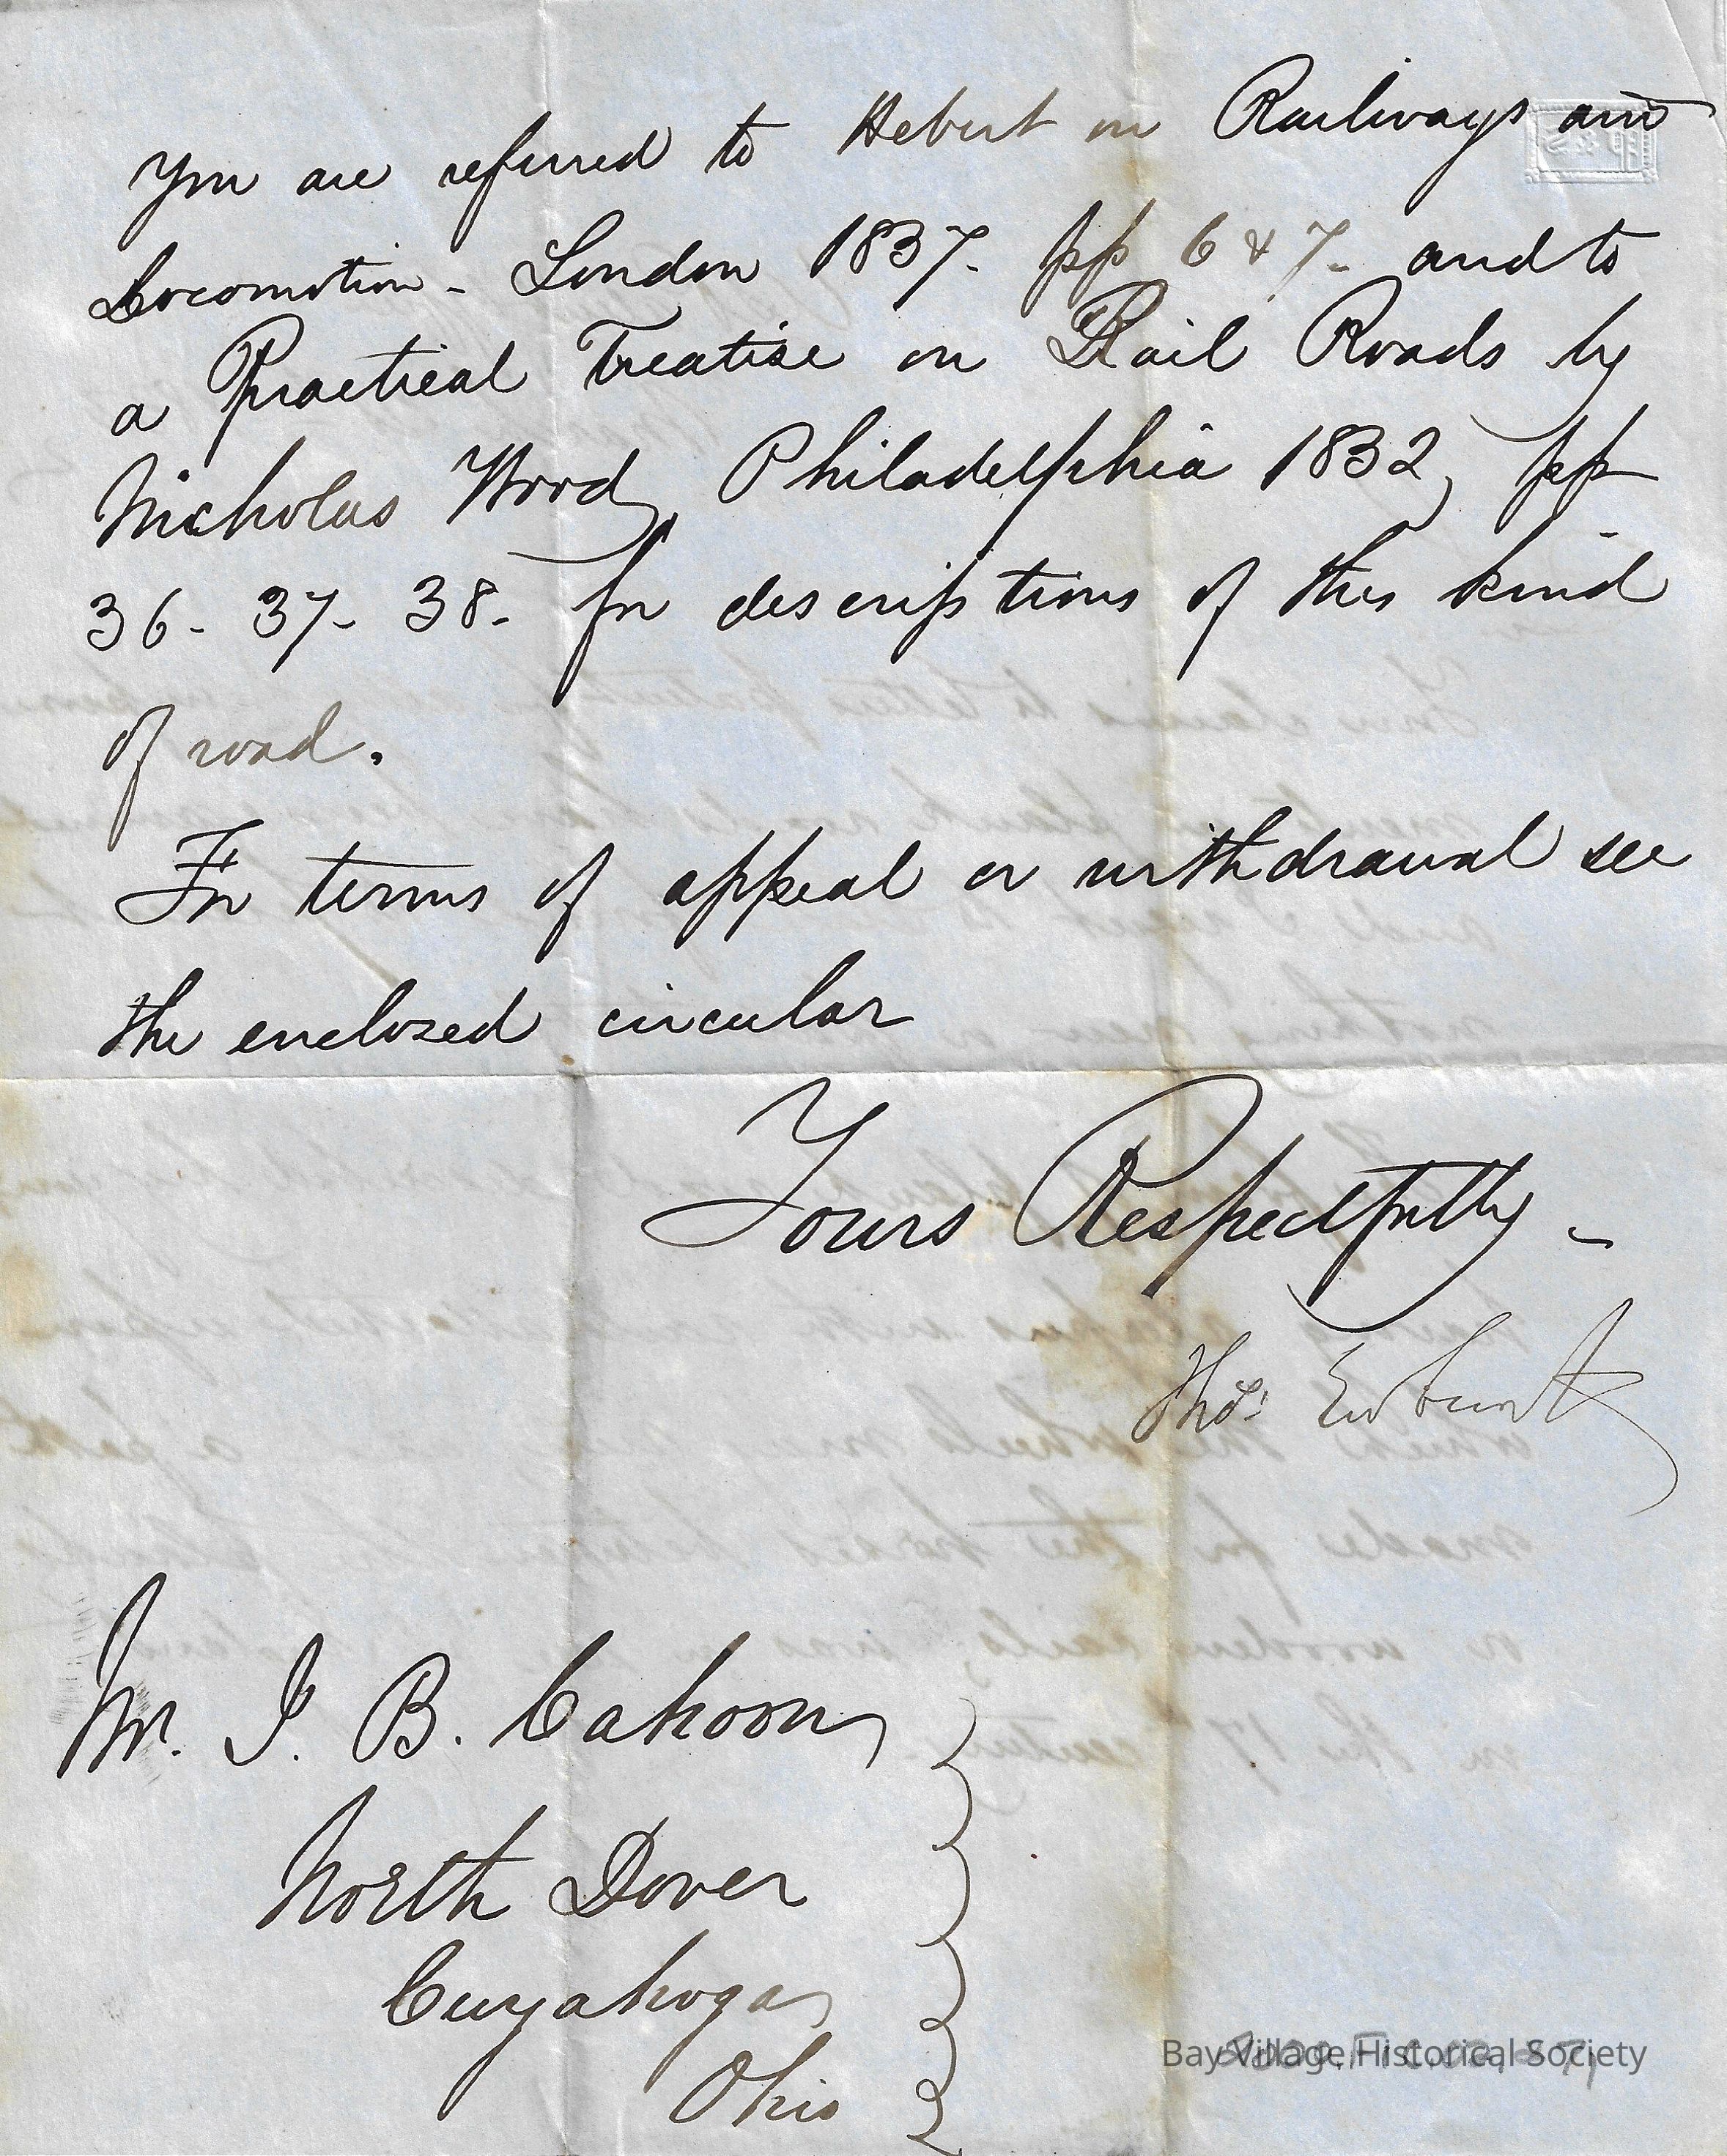 You are referred to Hebert on Railways and
Locomotion - London 1837. pp 6 & 7. and to
a Practical Treatise on Rail Roads by
Nicholas Wood, Philadelphia 1832, pp
36. 37. 38. for descriptions of this kind
of road.
For terms of appeal or withdrawal see
the enclosed circular
Yours Respectfully -
Thos. Ewbank
Mr. J. B. Cahoon
North Dover
Cuyahoga
Ohio
Bay Village Historical Society